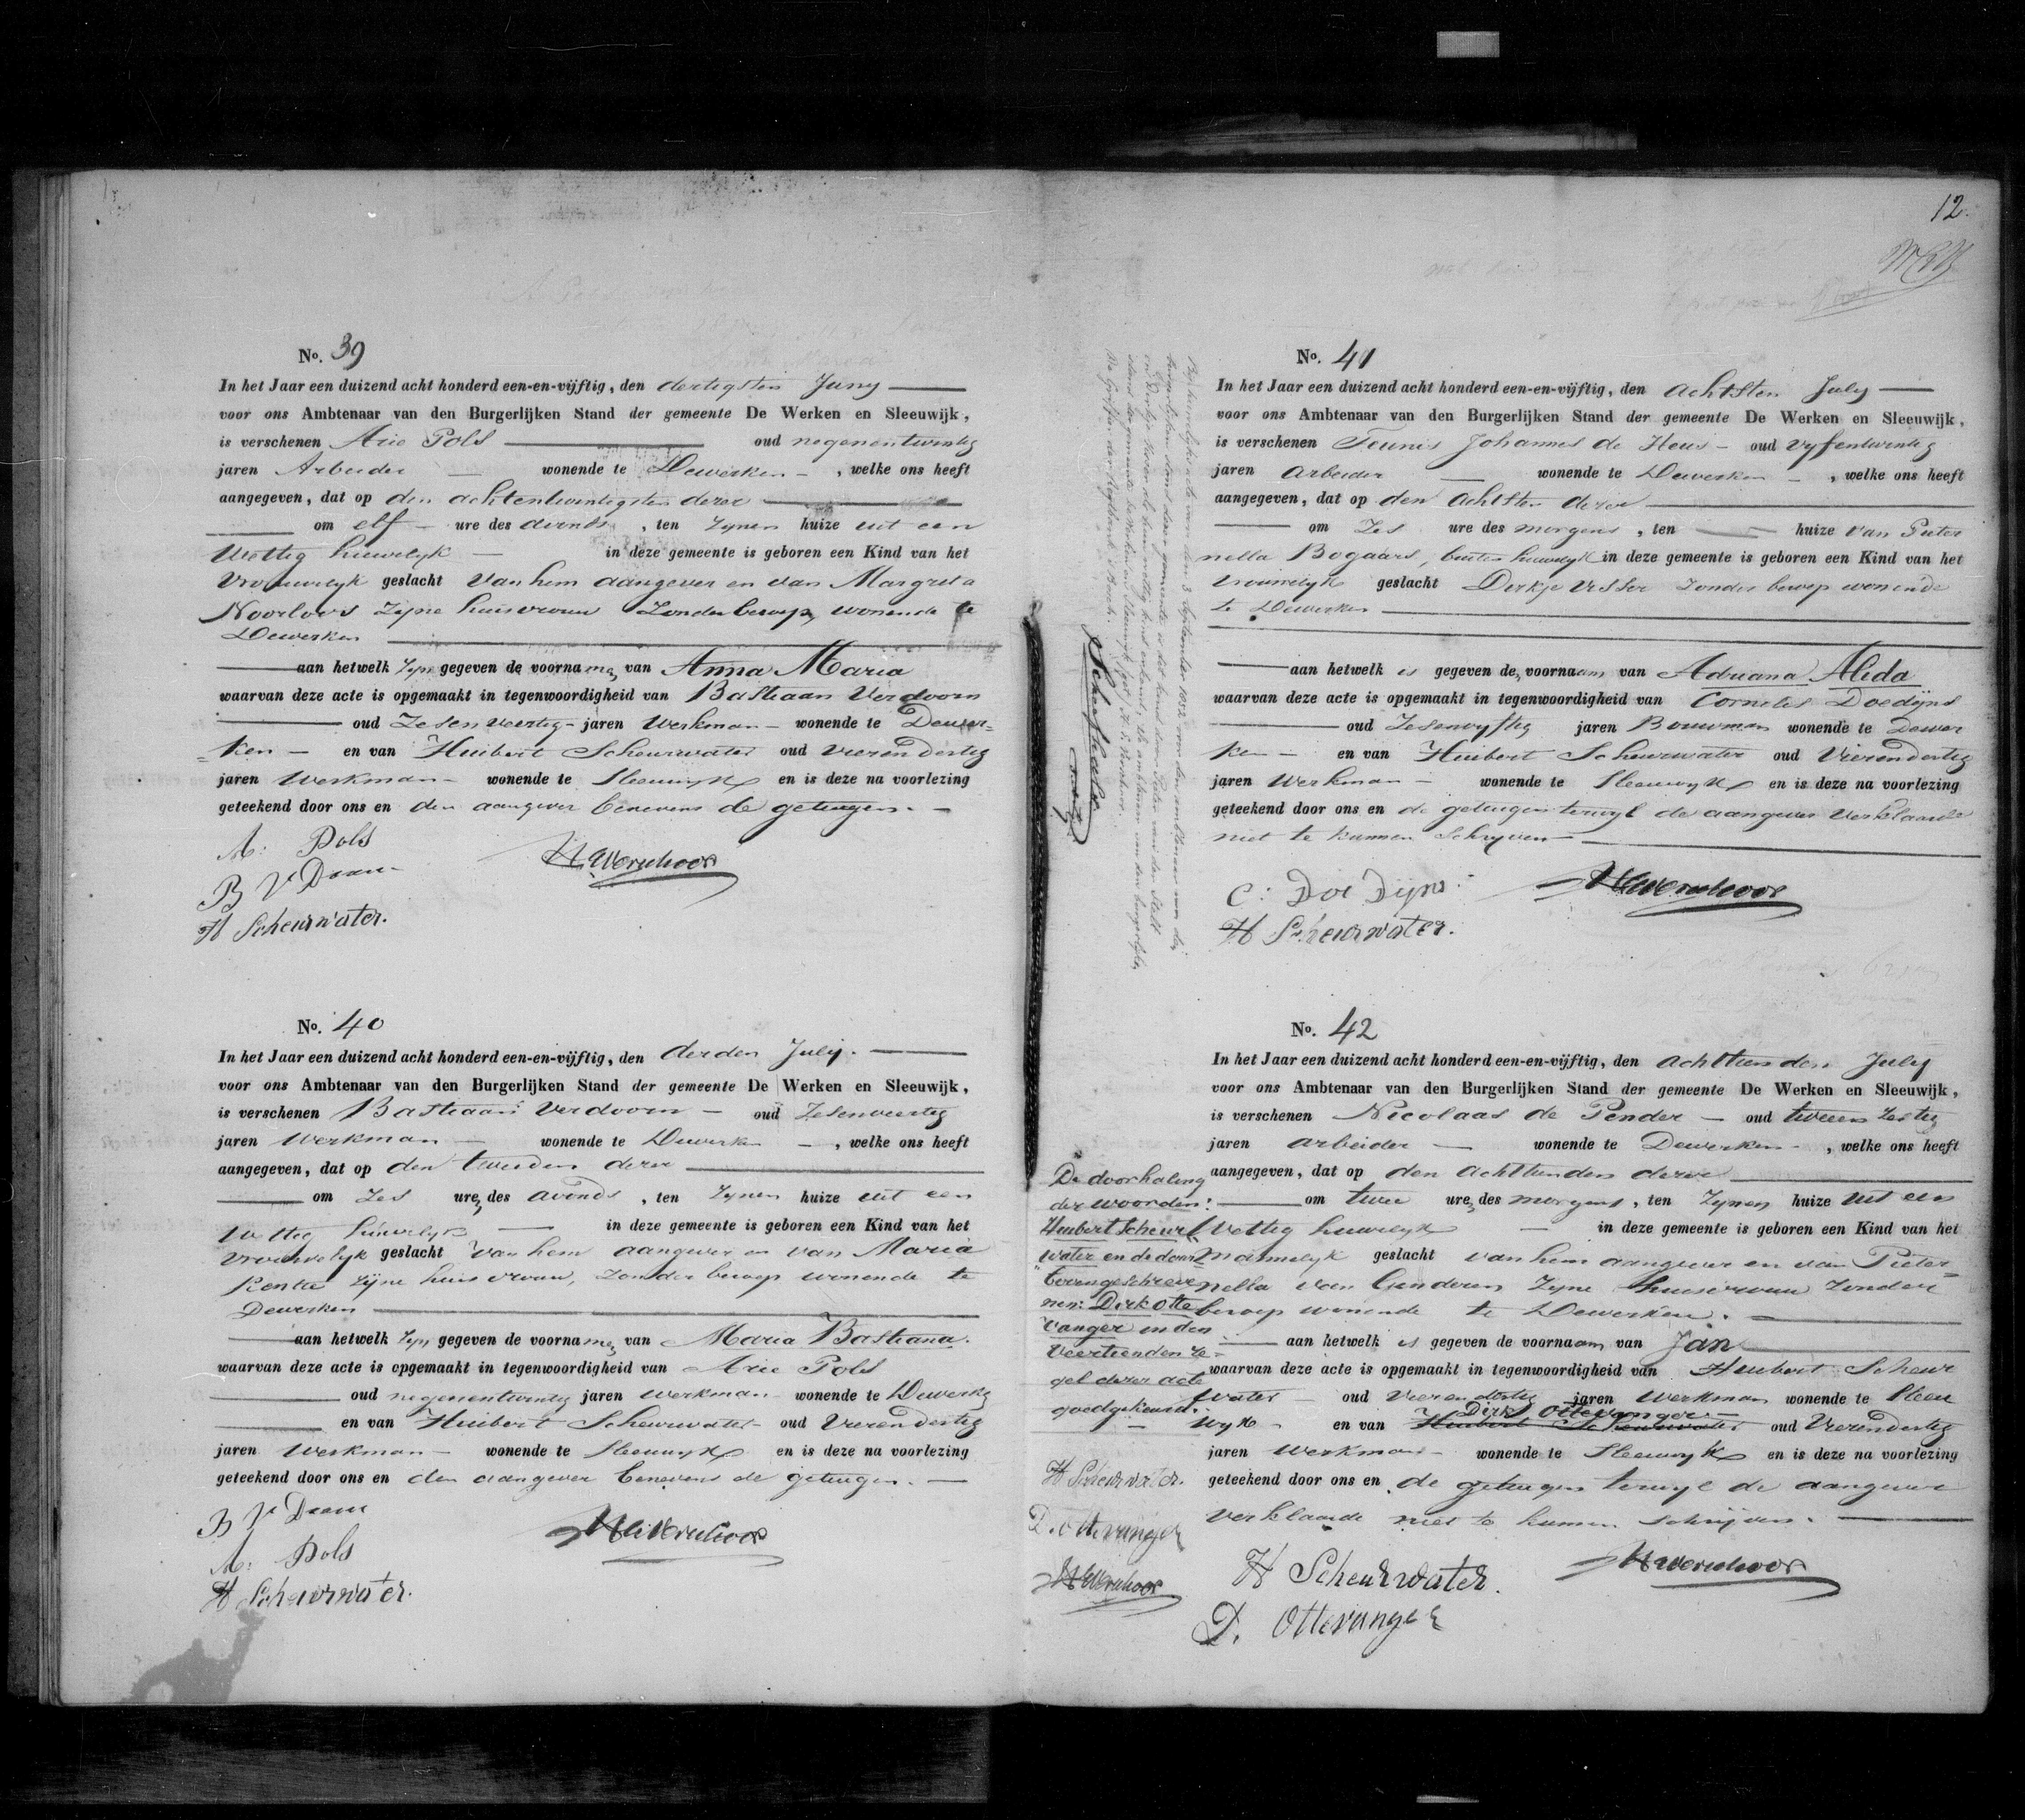 No. 39
In het Jaar een duizend acht honderd een-en-vijftig, den dertigsten Juny
voor ons Ambtenaar van den Burgerlijken Stand der gemeente De Werken en Sleeuwijk,
is verschenen Arie Pols oud negenentwintig
jaren Arbeider wonende te Dewerken, welke ons heeft
aangegeven, dat op den achtentwintigsten dezer
om elf ure des avonds, ten zynen huize uit een
Wettig huwelyk in deze gemeente is geboren een Kind van het
Vrouwelyk geslacht van hem aangever en van Margreta
Noorloos zyne huisvrouw zonder beroep, wonende te
Dewerken
aan hetwelk zyn gegeven de voornamen van Anna Maria
waarvan deze acte is opgemaakt in tegenwoordigheid van Bastiaan Verdoorn
oud zesenveertig jaren werkman wonende te Dewer=
=ken en van Huibert Scheurwater oud vierendertig
jaren Werkman wonende te Sleeuwyk en is deze na voorlezing
geteekend door ons en den aangever benevens de getuigen.
A: Pols
B V Doorn
H Scheurwater.
No. 40
In het Jaar een duizend acht honderd een-en-vijftig, den derden July.
voor ons Ambtenaar van den Burgerlijken Stand der gemeente De Werken en Sleeuwijk,
is verschenen Bastiaan Verdoorn oud zesenveertig
jaren Werkman wonende te Dewerken, welke ons heeft
aangegeven, dat op den tweeden dezer
om zes ure, des avonds, ten zynen huize uit een
Wettig huwelyk in deze gemeente is geboren een Kind van het
vrouwelyk geslacht van hem aangever en van Maria
zyne huisvrouw, zonder beroep wonende te
Dewerken
aan hetwelk zyn gegeven de voornamen van Maria Bastiana.
waarvan deze acte is opgemaakt in tegenwoordigheid van Arie Pols
oud negenentwintig jaren werkman wonende te Dewerken
en van Huibert Scheurwater oud vierendertig
jaren Werkman wonende te Sleeuwyk en is deze na voorlezing
geteekend door ons en den aangever benevens de getuigen.
B V Doorn
A: Pols
H Scheurwater.
12.
No. 41
In het Jaar een duizend acht honderd een-en-vijftig, den achtsten July
voor ons Ambtenaar van den Burgerlijken Stand der gemeente De Werken en Sleeuwijk,
is verschenen Teunis Johannes de Heus oud vyfentwintig
jaren arbeider wonende te Dewerken, welke ons heeft
aangegeven, dat op den achtsten dezer
om zes ure des morgens, ten huize van Pieter
nella Bogaars, buiten huwelyk in deze gemeente is geboren een Kind van het
vrouwelyk geslacht Dirkje Visser zonder beroep wonende
te Dewerken
aan hetwelk is gegeven de voornaam van Adriana Alida
waarvan deze acte is opgemaakt in tegenwoordigheid van Cornelis Doedijns
oud zesenvyftig jaren Bouwman wonende te Dewer
ken en van Huibert Scheurwater oud Vierendertig
jaren Werkman wonende te Sleeuwyk en is deze na voorlezing
geteekend door ons en de getuigen terwyl de aangever verklaarde
niet te kunnen schryven
C: Doe Dijns
H Scheurwater.
No. 42
In het Jaar een duizend acht honderd een-en-vijftig, den achttienden July
voor ons Ambtenaar van den Burgerlijken Stand der gemeente De Werken en Sleeuwijk,
is verschenen Nicolaas de Pender oud tweeenzestig
jaren arbeider wonende te Dewerken, welke ons heeft
aangegeven, dat op den achttienden dezer
om twee ure, des morgens, ten zynen huize uit een
Wettig huwelyk in deze gemeente is geboren een Kind van het
mannelyk geslacht van hem aangever en van Pieter=
nella van Genderen zyne huisvrouw zonder
beroep wonende te Dewerken.
aan hetwelk is gegeven de voornaam van Jan
waarvan deze acte is opgemaakt in tegenwoordigheid van Huibert Scheur
water oud Vierendertig jaren Werkman wonende te Sleeu
wyk en van Huibert Scheurwater Dirk Ottevanger oud Vierendertig
jaren Werkman wonende te Sleeuwyk en is deze na voorlezing
geteekend door ons en de getuigen terwyl de aangever
verklaarde niet te kunnen schrijven.
H Scheurwater.
D. Ottevanger
De doorhaling
der woorden:
Huibert Scheur
water en de daar
boven geschreve
nen: Dirk Otte
vanger in den
veertienden re=
gel dezer acte
goedgekeurd.
H Scheurwater.
D. Ottevanger